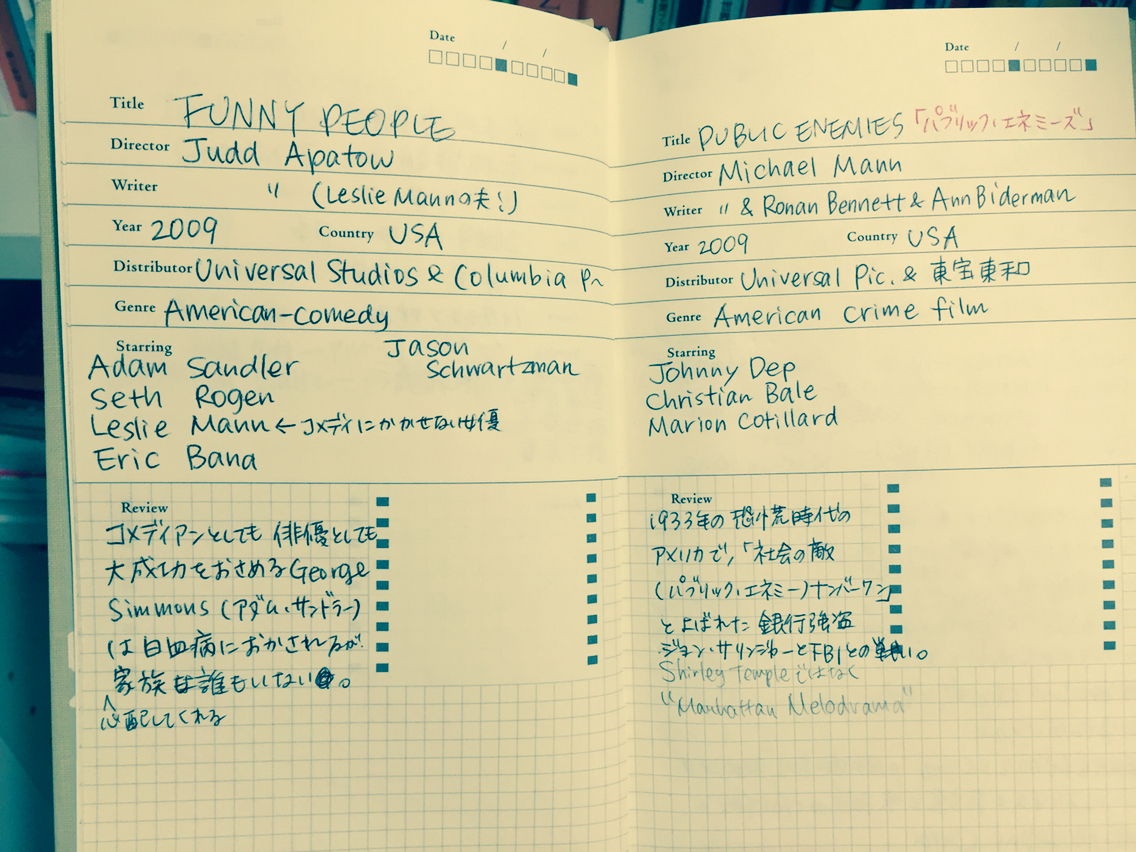 Date / /
Title FUNNY PEOPLE
Director Judd Apatow
Writer 〃 (Leslie Mannの夫!)
Year 2009 Country USA
Distributor Universal Studios & Columbia P~
Genre American-comedy
Starring Jason
Adam Sandler Schwartzman
Seth Rogen
Leslie Mann ← コメディにかかせない女優
Eric Bana
Review
コメディアンとしても 俳優としても
大成功をおさめるGeorge
Simmons (アダム・サンドラー)
は白血病におかされるが
家族は誰もいない。
心配してくれる
Date / /
Title PUBLIC ENEMIES 「パブリック・エネミーズ」
Director Michael Mann
Writer 〃 & Ronan Bennett & Ann Biderman
Year 2009 Country USA
Distributor Universal Pic. & 東宝東和
Genre American crime film
Starring
Johnny Dep
Christian Bale
Marion Cotillard
Review
1933年の 恐慌時代の
アメリカで,「社会の敵
(パブリック・エネミー)ナンバーワン」
とよばれた 銀行強盗
ジョン・サリンジャーとFBIとの戦い。
Shirley Temple ではなく
"Manhattan Melodrama"